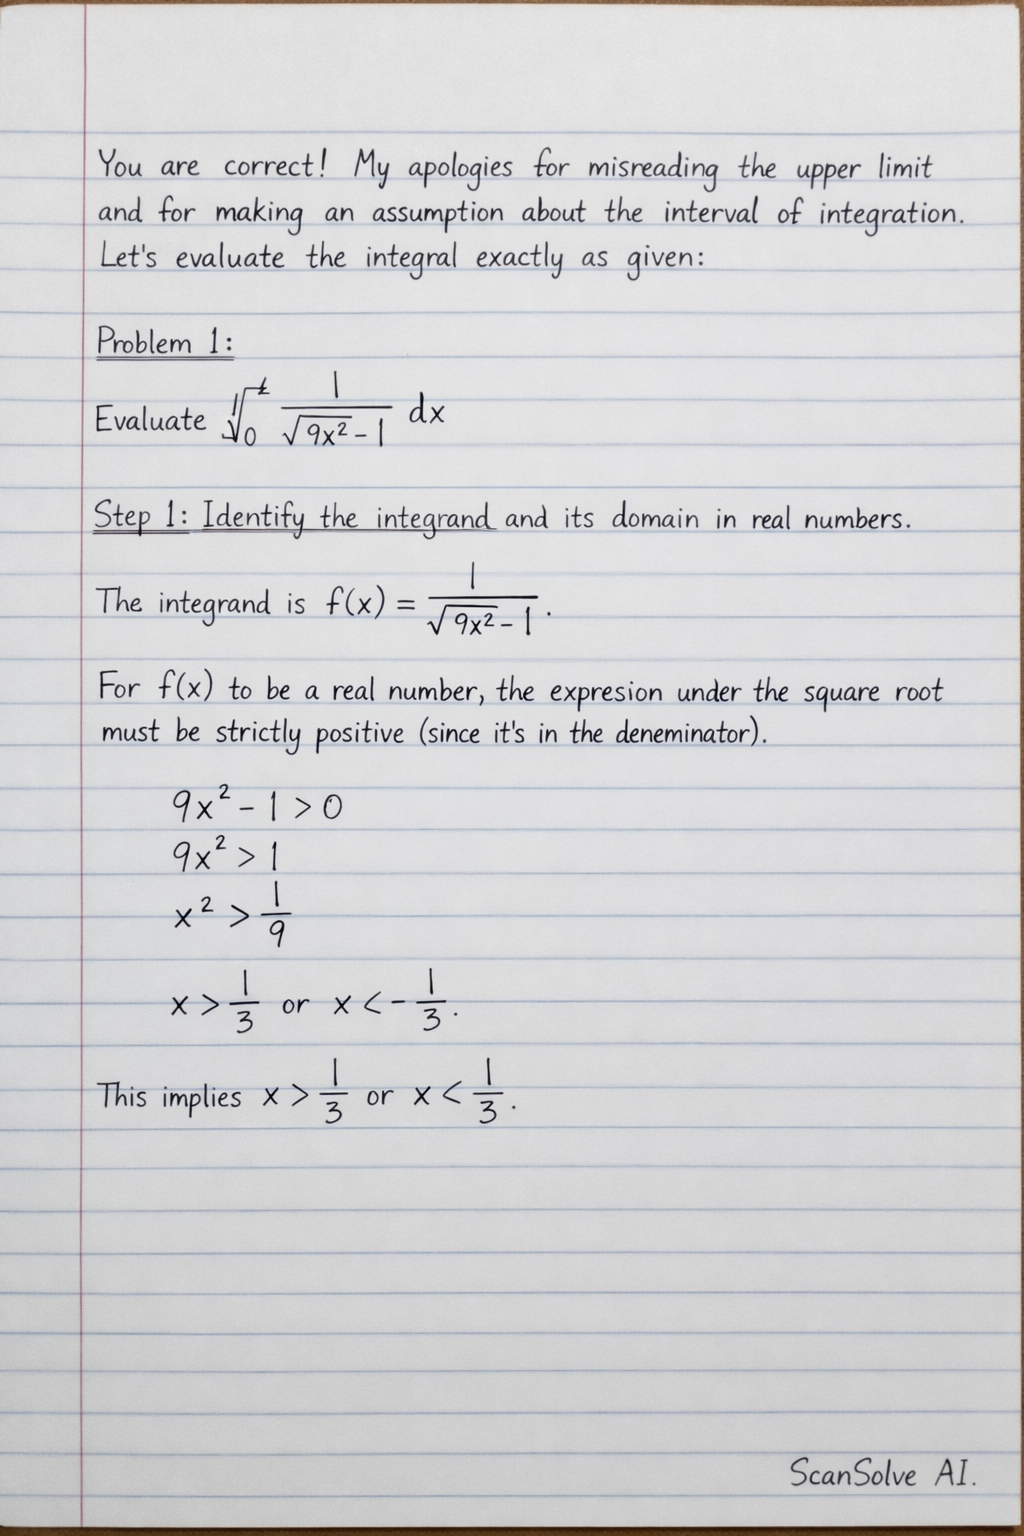 You are correct! My apologies for misreading the upper limit
and for making an assumption about the interval of integration.
Let's evaluate the integral exactly as given:
Problem 1:
Evaluate ∫₀ 1/√9x² - 1 dx
Step 1: Identify the integrand and its domain in real numbers.
The integrand is f(x) = 1/√9x² - 1.
For f(x) to be a real number, the expresion under the square root
must be strictly positive (since it's in the deneminator).
9x² - 1 > 0
9x² > 1
x² > 1/9
x > 1/3 or x < - 1/3.
This implies x > 1/3 or x < 1/3.
ScanSolve AI.